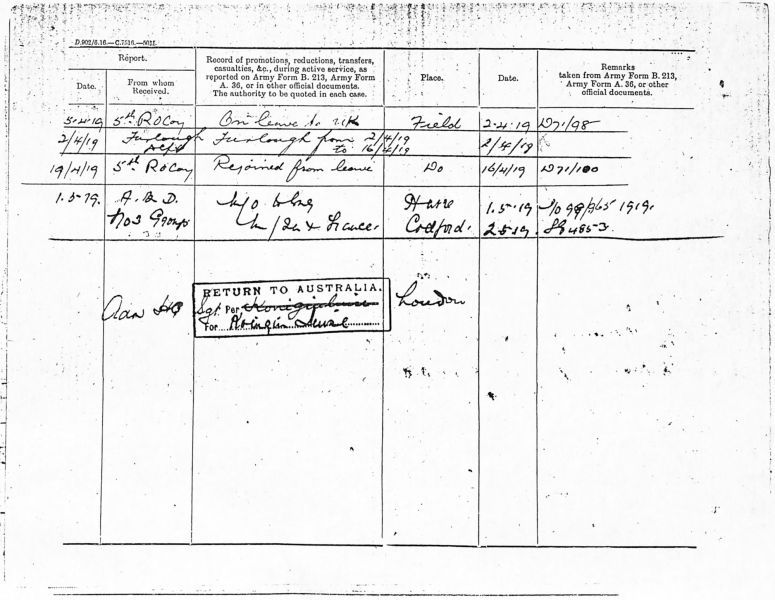 D.902/6.16.—C.7516.—5011.
Report.
Record of promotions, reductions, transfers,
casualties, &c., during active service, as
reported on Army Form B. 213, Army Form
A. 36, or in other official documents.
The authority to be quoted in each case.
Place.
Date.
Remarks
taken from Army Form B. 213,
Army Form A. 36, or other
official documents.
Date.
From whom
Received.
5.4.19 5th R O Coy On leave to UK Field 2.4.19 D71/98
2/4/19 Furlough Furlough from 2/4/19 2/4/19
to 16/4/19
19/4/19 5th R O Coy Rejoined from leave Do 16/4/19 D71/100
1.5.19. A.B.D. M/O to Eng Havre 1.5.19 1919.
No 3 Group M/In ex France. Codford. 2.5.19.
RETURN TO AUSTRALIA.
Adm HQ Sgt. Per London
For